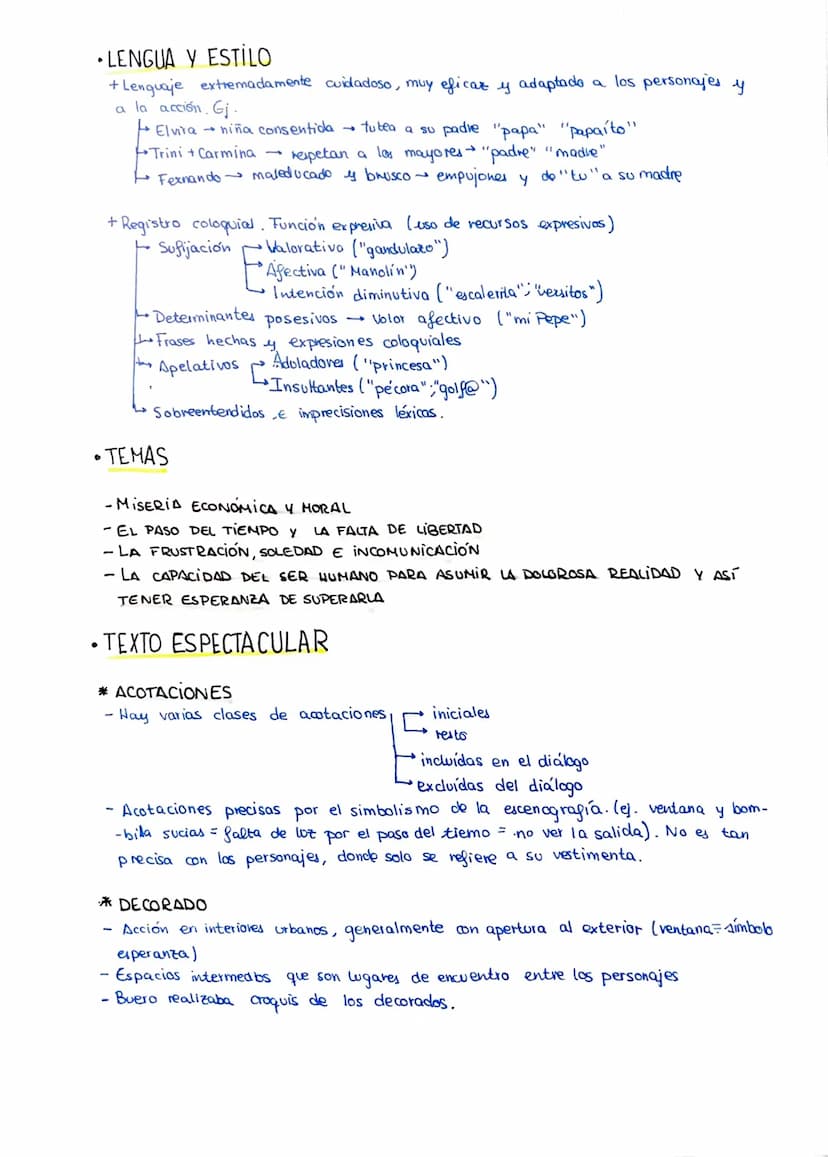 • LENGUA Y ESTILO
+ Lenguaje extremadamente cuidadoso, muy eficaz y adaptado a los personajes y
a la acción. Ej.
→ Elvira → niña consentida → tutea a su padre "papa" "papaíto"
→ Trini + Carmina → respetan a los mayores → "padre" "madre"
→ Fernando → maleducado y brusco → empujones y de "tu" a su madre
+ Registro coloquial. Función expresiva (uso de recursos expresivos)
→ Sufijación → Valorativa ("gandulazo")
→ Afectiva ("Manolín")
→ Intención diminutiva ("escalerita"; "versitos")
→ Determinantes posesivos → Valor afectivo ("mi Pepe")
→ Frases hechas y expresiones coloquiales
→ Apelativos → Aduladores ("princesa")
→ Insultantes ("pécora"; "golf@")
→ Sobreentendidos e imprecisiones léxicas.
• TEMAS
- MISERIA ECONÓMICA Y MORAL
- EL PASO DEL TIEMPO Y LA FALTA DE LIBERTAD
- LA FRUSTRACIÓN, SOLEDAD E INCOMUNICACIÓN
- LA CAPACIDAD DEL SER HUMANO PARA ASUMIR LA DOLOROSA REALIDAD Y ASÍ
TENER ESPERANZA DE SUPERARLA
• TEXTO ESPECTACULAR
* ACOTACIONES
- Hay varias clases de acotaciones → iniciales
→ resto
→ incluídas en el diálogo
→ excluídas del diálogo
- Acotaciones precisas por el simbolismo de la escenografía. (ej. ventana y bom-
-bila sucias = falta de luz por el paso del tiemo = no ver la salida). No es tan
precisa con los personajes, donde solo se refiere a su vestimenta.
* DECORADO
- Acción en interiores urbanos, generalmente con apertura al exterior (ventana = símbolo
esperanza)
- Espacios intermedios que son lugares de encuentro entre los personajes
- Buero realizaba croquis de los decorados.